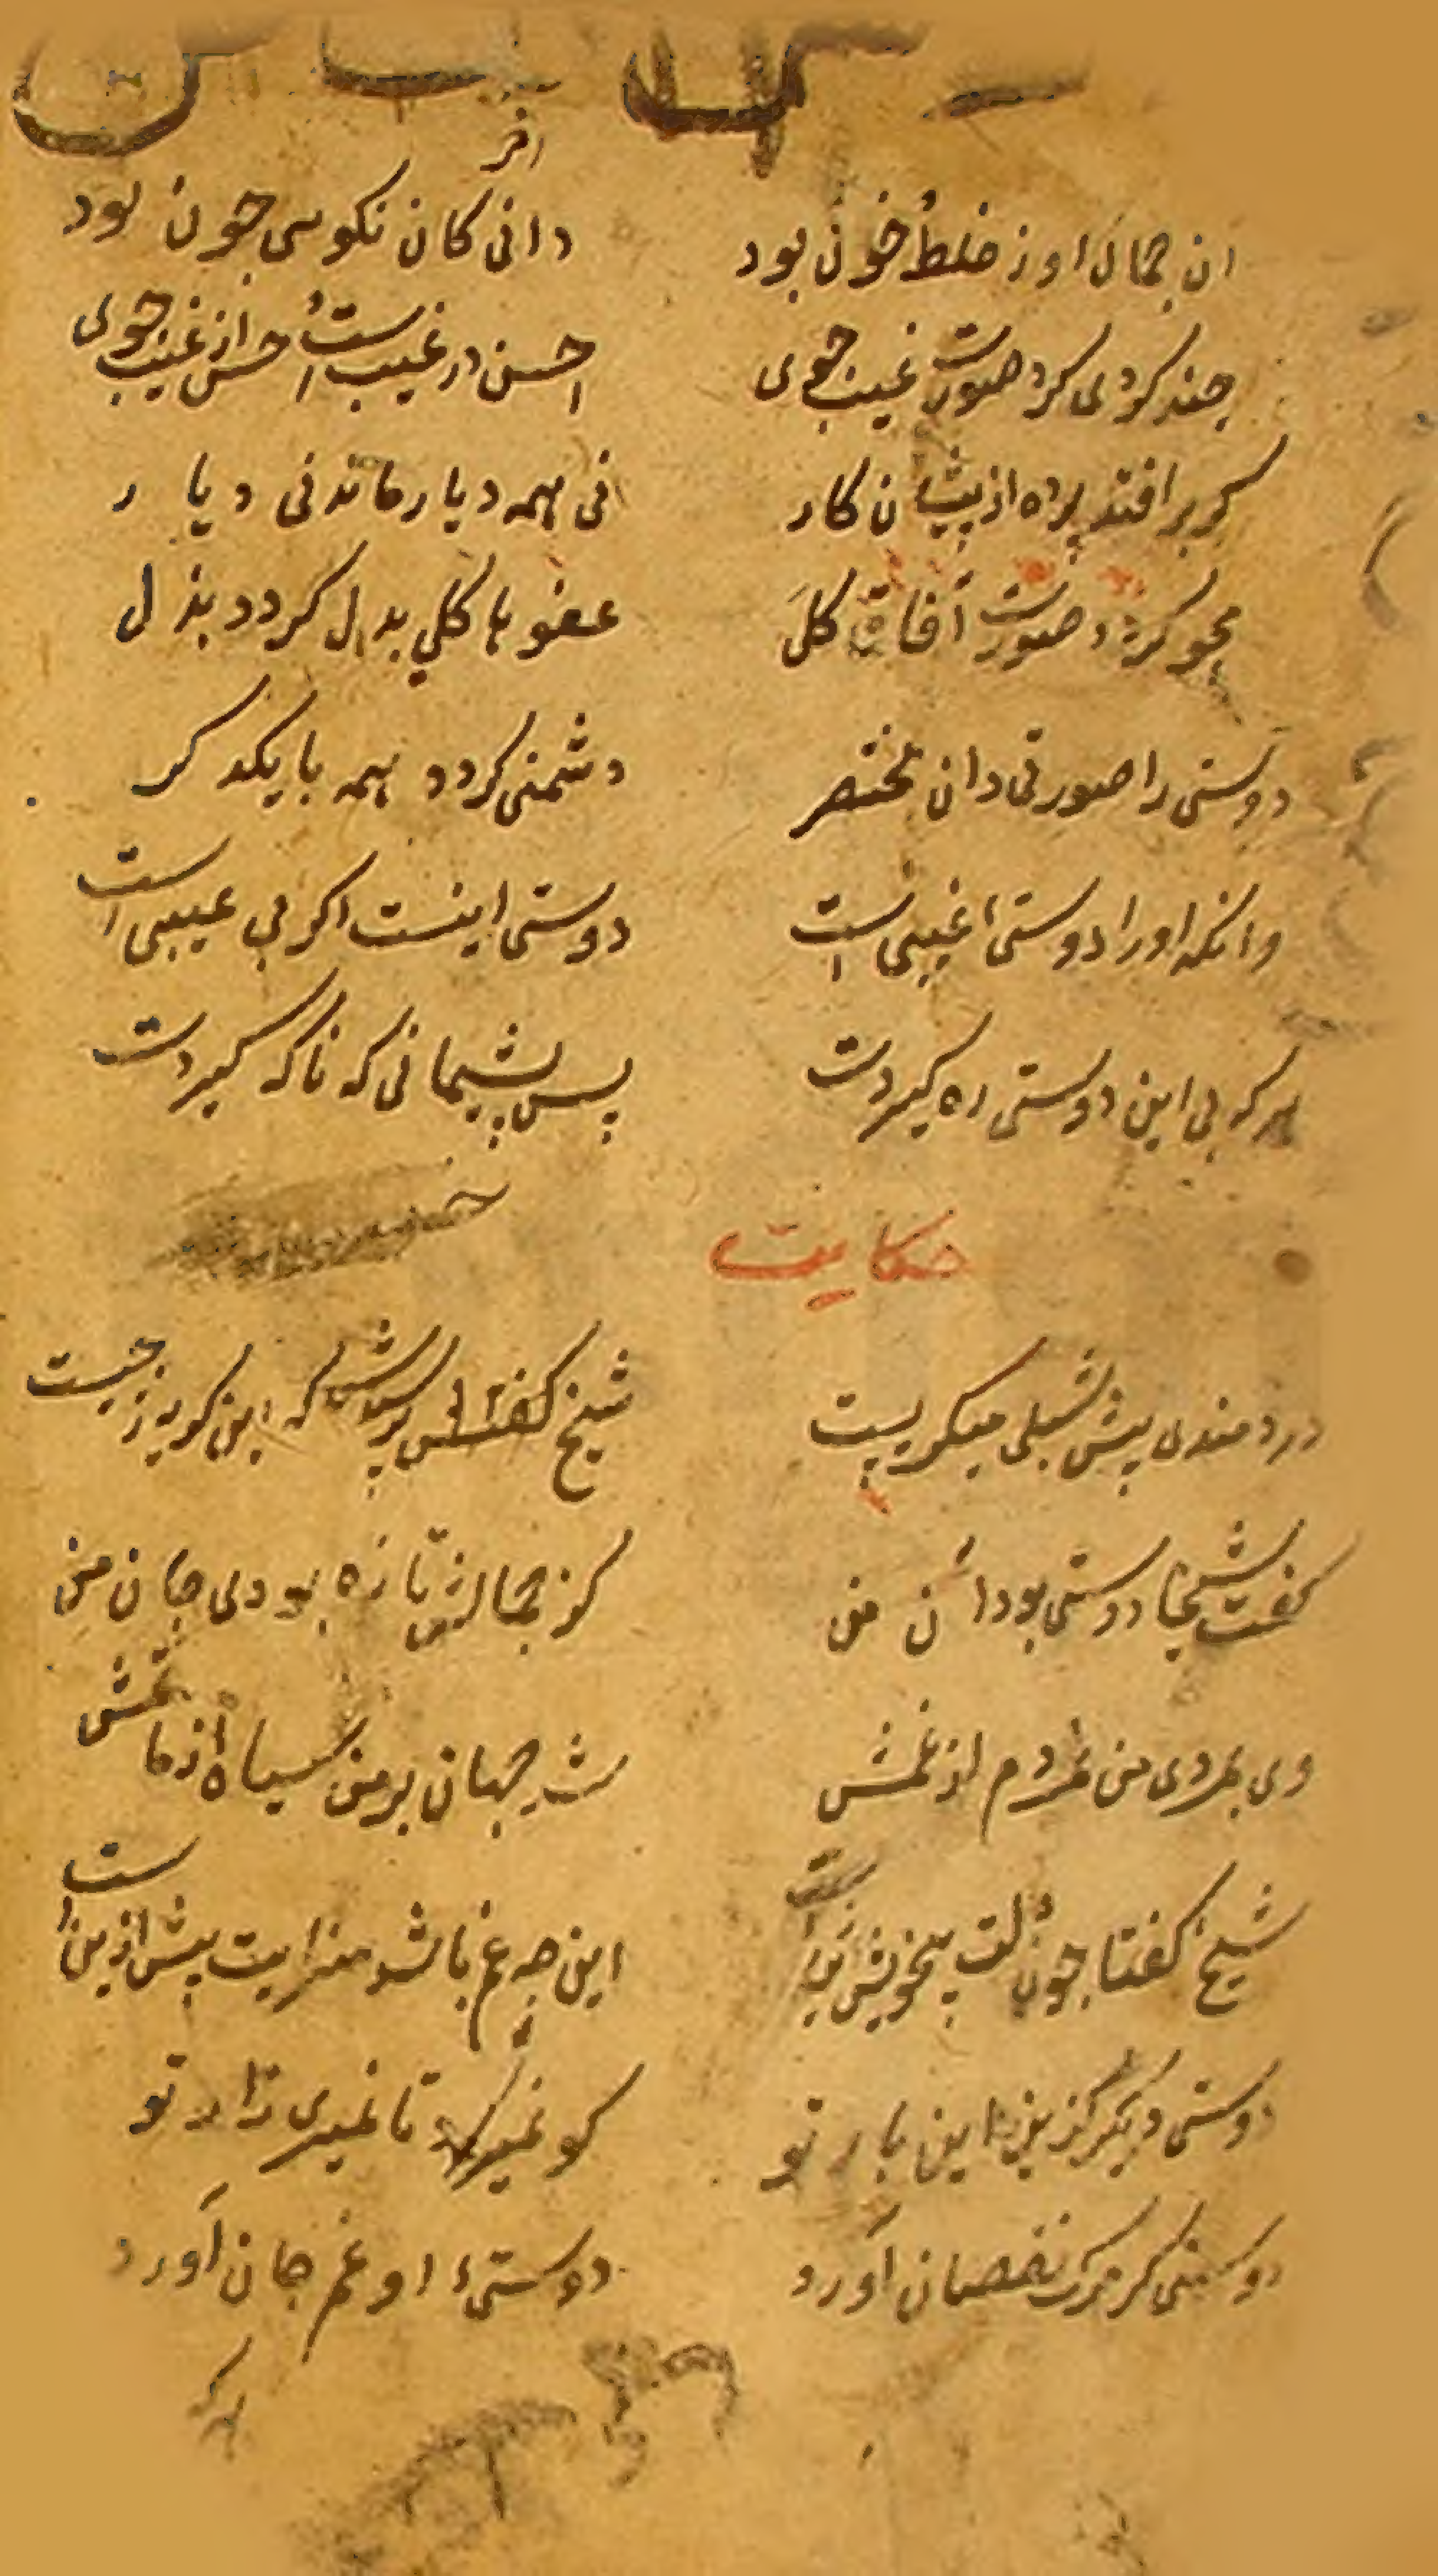 آخر
ان جمال او ز خلط خون بود دانی کان نکویی چون بود
چند کردی کرد صورت غیب جوی حسن در غیب است حسن از غیب جوی
کر بر افتد پرده از پیشان کار نی همه دیار ماند نی دیار
محو کردد صورت آفاق کل عضوها کلی بدل کردد بذل
دوستی را صورتی دان مختصر دشمنی کردد همه با یکدکر
وانکه او را دوستیٔ غیبی است دوستی اینست اکر بی عیبی است
هر که بی این دوستی ره کیردت بس پشیمانی که ناکه کیردت
حکایت
دردمندی پیش شبلی میکریست شیخ پرسیدش که این کریه ز چیست
کفت شیخا دوستی بود آن من کز جمالش تازه بودی جان من
دی بمرد و من بمردم از غمش شد جهان بر من سیاه از ماتمش
شیخ کفتا چون دلت بیخویش ازینست این چه غم باشد سزایت بیش ازینست
دوستی دیکر کزین این بار تو کو نمیرد تا نمیری زار تو
دوستی کز مرک نقصان آورد دوستیٔ او غم جان آورد
هر که